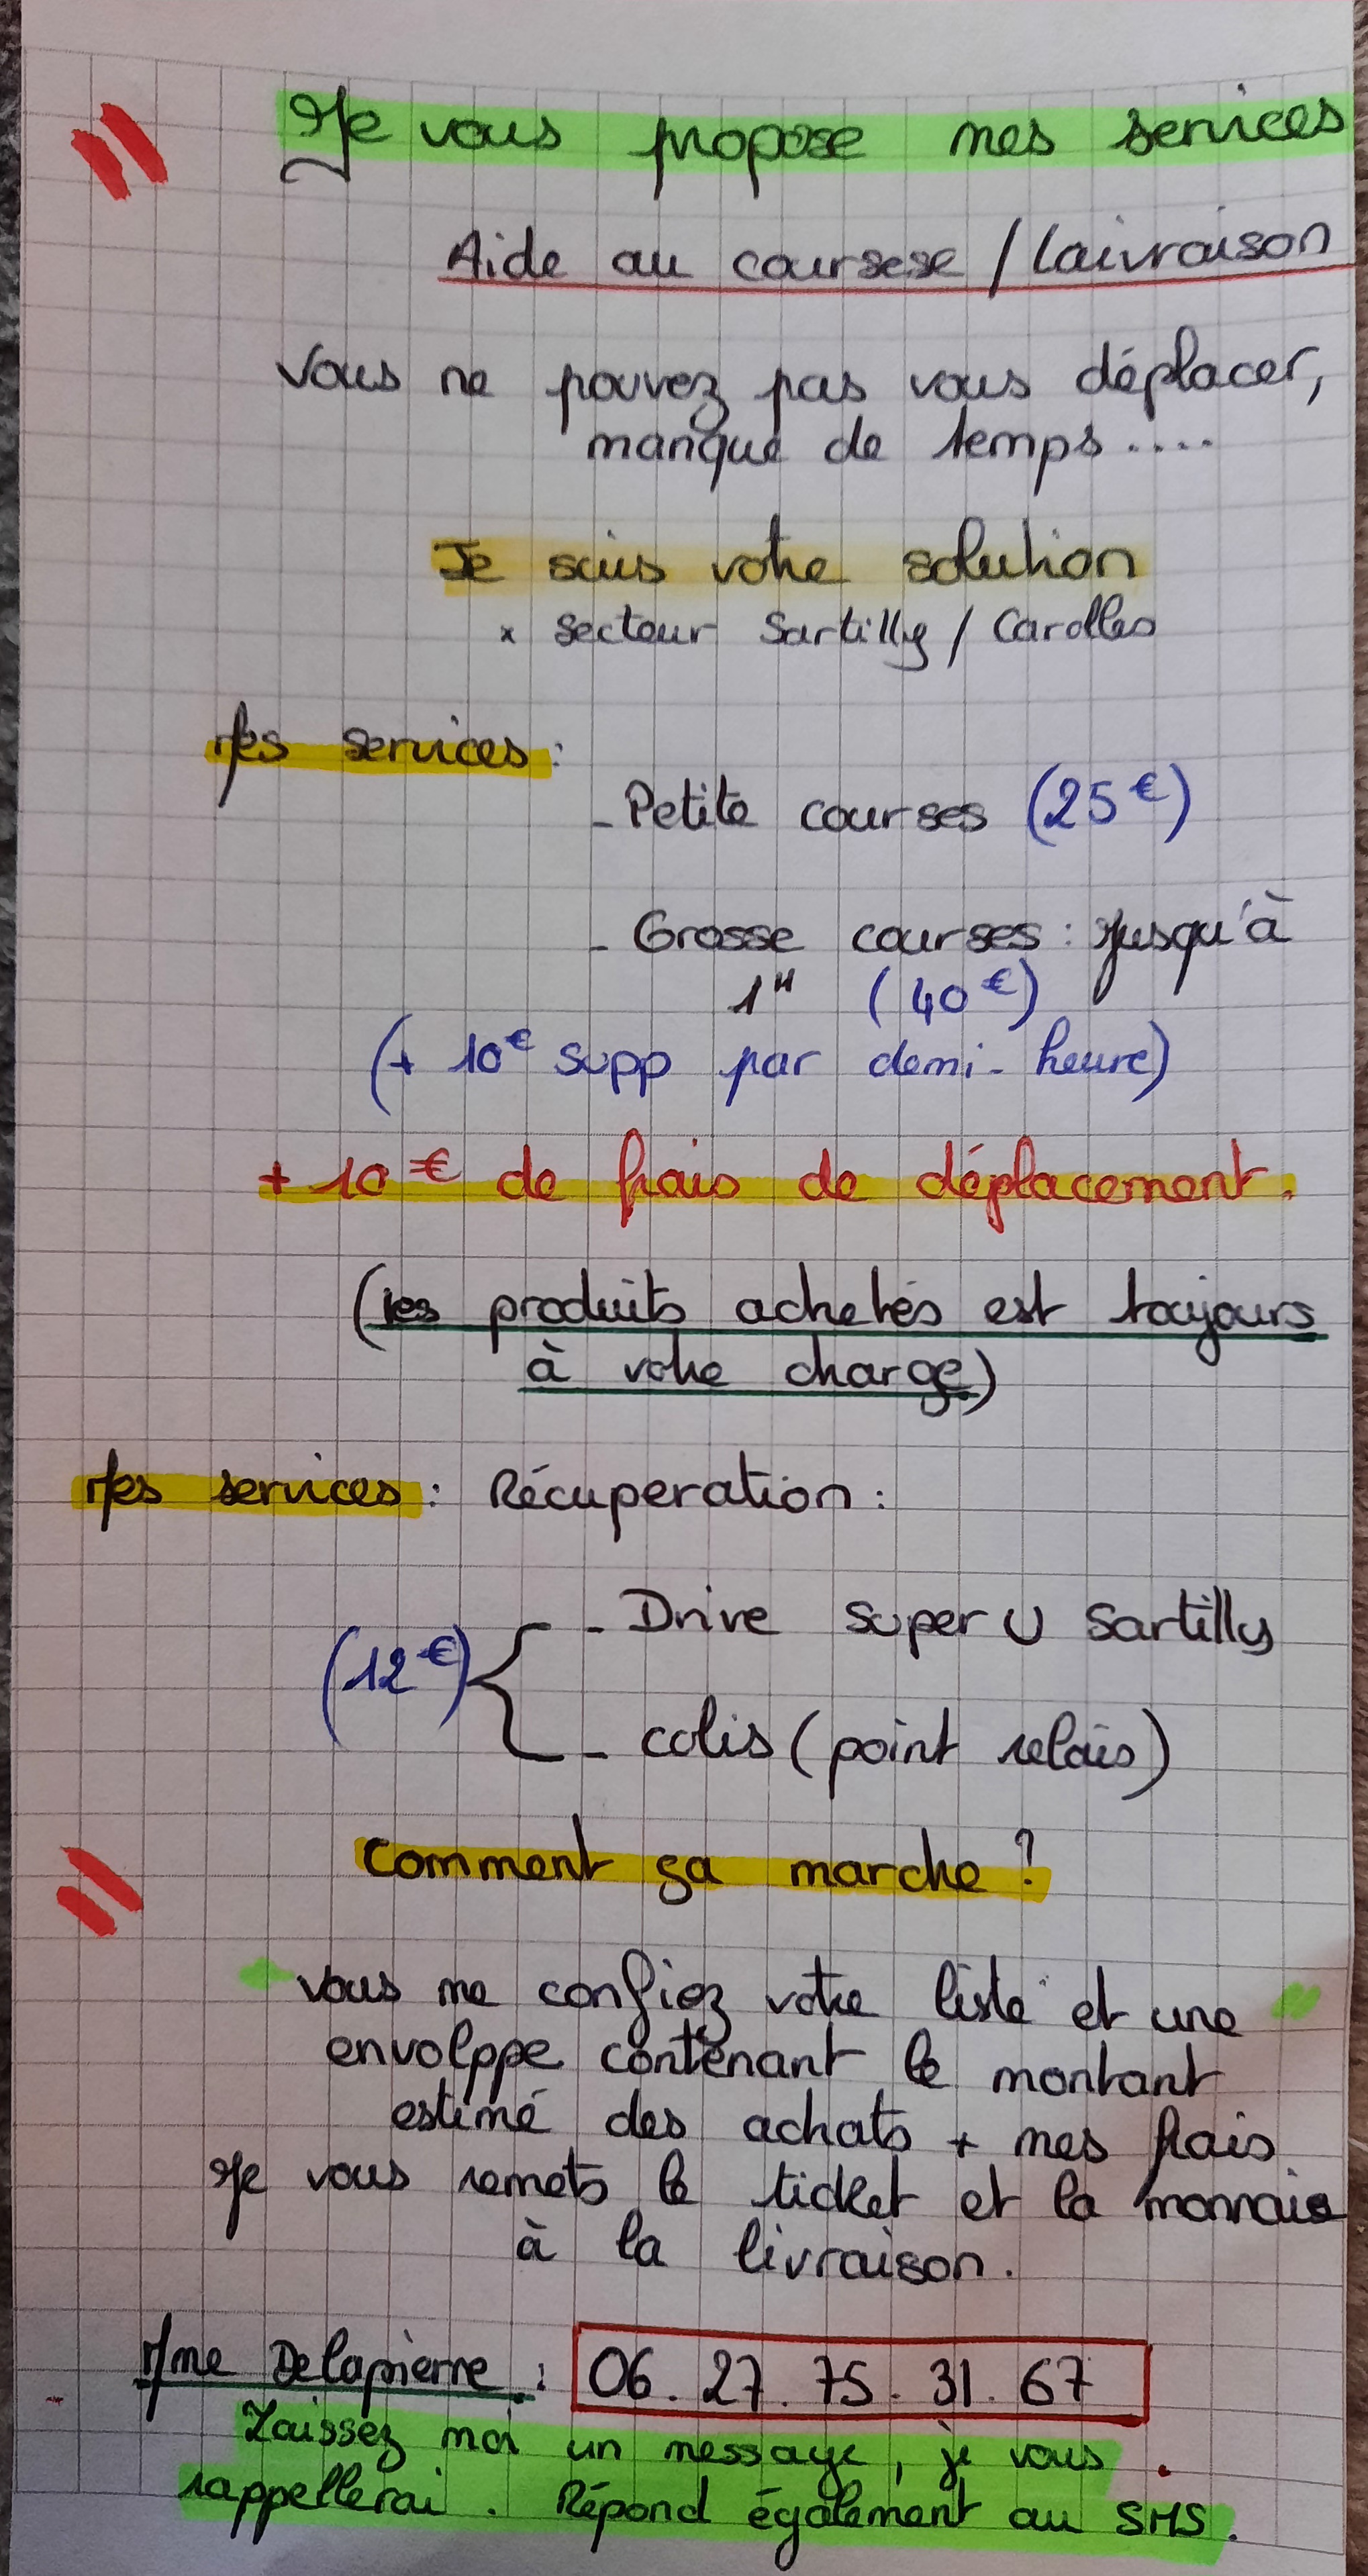 Je vous propose mes services
Aide au coursese / Laivraison
Vous ne pouvez pas vous déplacer,
manque de temps ....
Je suis votre solution
x secteur Sartilly / Carolles
Mes services :
- Petite courses (25€)
- Grosse courses : Jusqu'à
1H (40€)
(+ 10€ supp par demi-heure)
+ 10€ de frais de déplacement.
(les produits achetés est toujours
à votre charge)
Mes services : Récuperation :
- Drive super U Sartilly
(12€)
- colis (point relais)
Comment ça marche ?
Vous me confiez votre liste et une
envolppe contenant le montant
estimé des achats + mes frais
Je vous remets le ticket et la monnaie
à la livraison.
Mme Delapierre : 06.27.75.31.67
Laissez moi un message, je vous
rappellerai. Répond également au SMS.